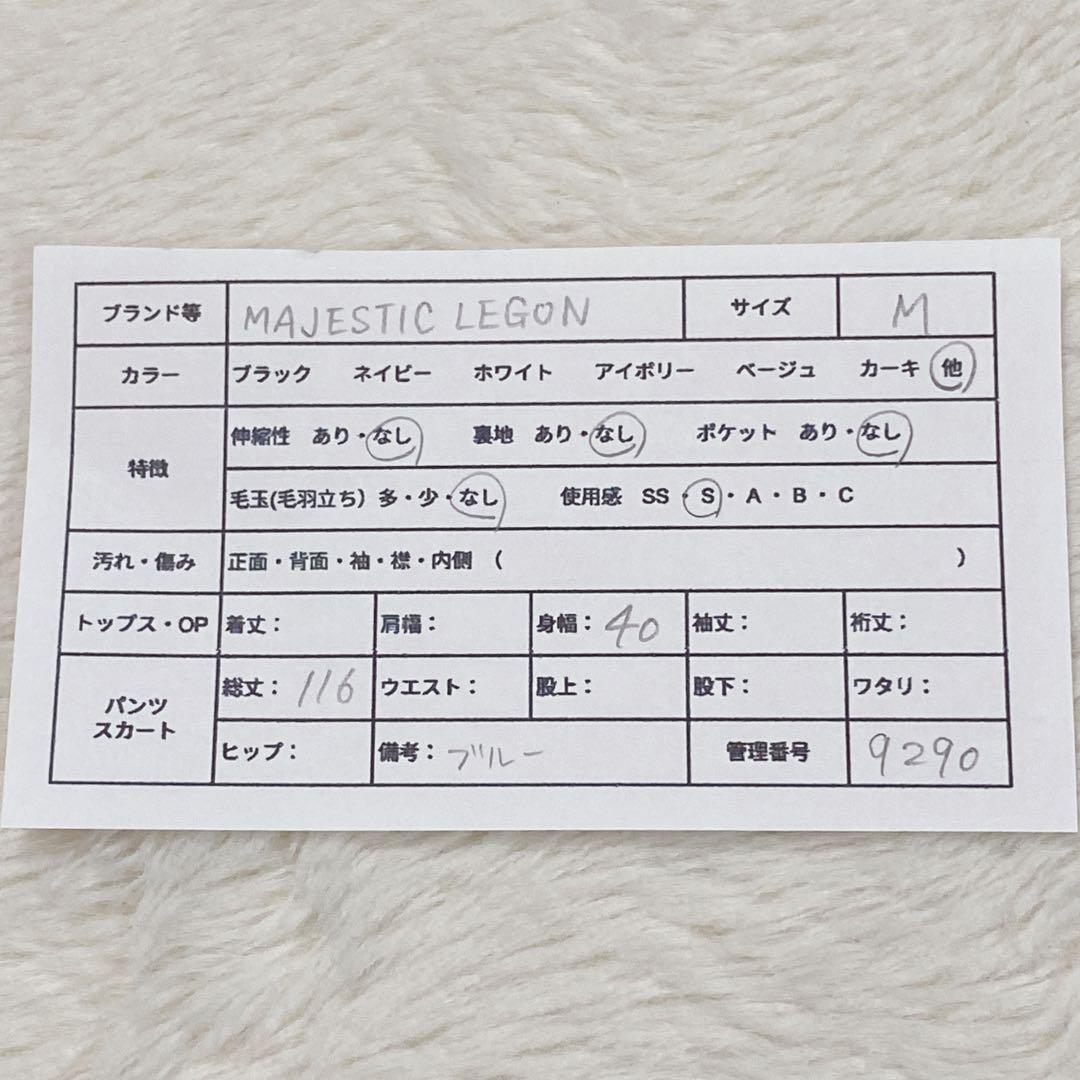 ブランド等 MAJESTIC LEGON サイズ M
カラー ブラック ネイビー ホワイト アイボリー ベージュ カーキ 他
特徴 伸縮性 あり・なし 裏地 あり・なし ポケット あり・なし
毛玉(毛羽立ち) 多・少・なし 使用感 SS・S・A・B・C
汚れ・傷み 正面・背面・袖・襟・内側 ( )
トップス・OP 着丈： 肩幅： 身幅：40 袖丈： 裄丈：
パンツ スカート 総丈：116 ウエスト： 股上： 股下： ワタリ：
ヒップ： 備考：ブルー 管理番号 9290